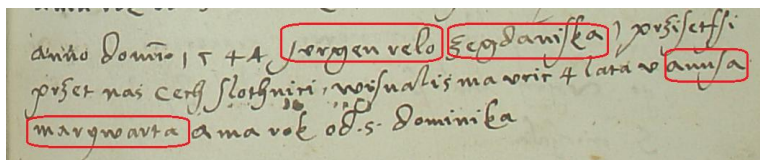 anno domi 1544 jorgen relo zegdaniska przisetssi
przet nas Cech slothnici, wisnalis ma vric 4 lata v anusa
marqwarta a ma rok od s. dominika